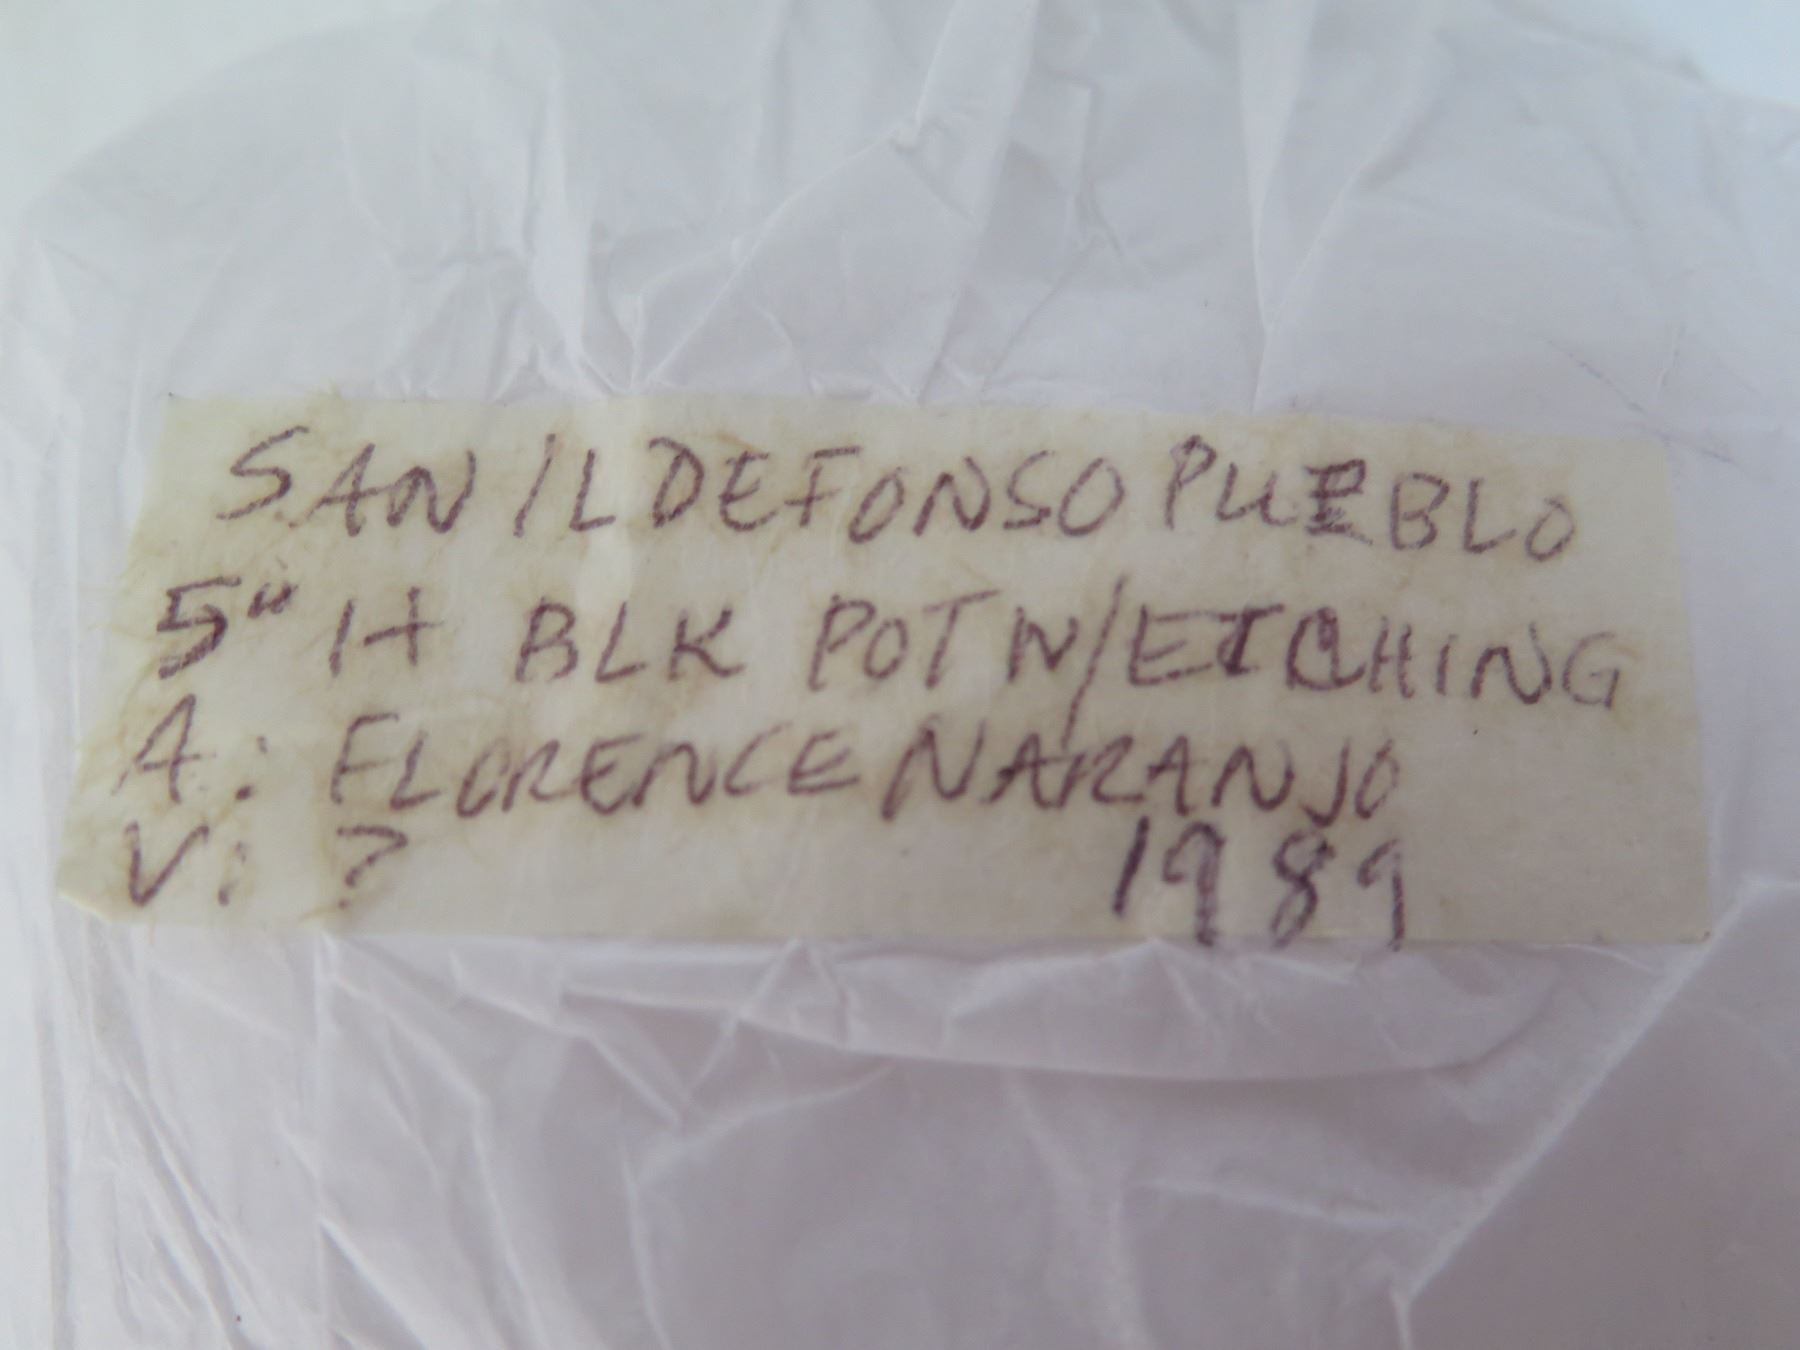 SAN ILDEFONSO PUEBLO
5" H BLK POT W/ETCHING
A: FLORENCE NARANJO
V: ? 1989